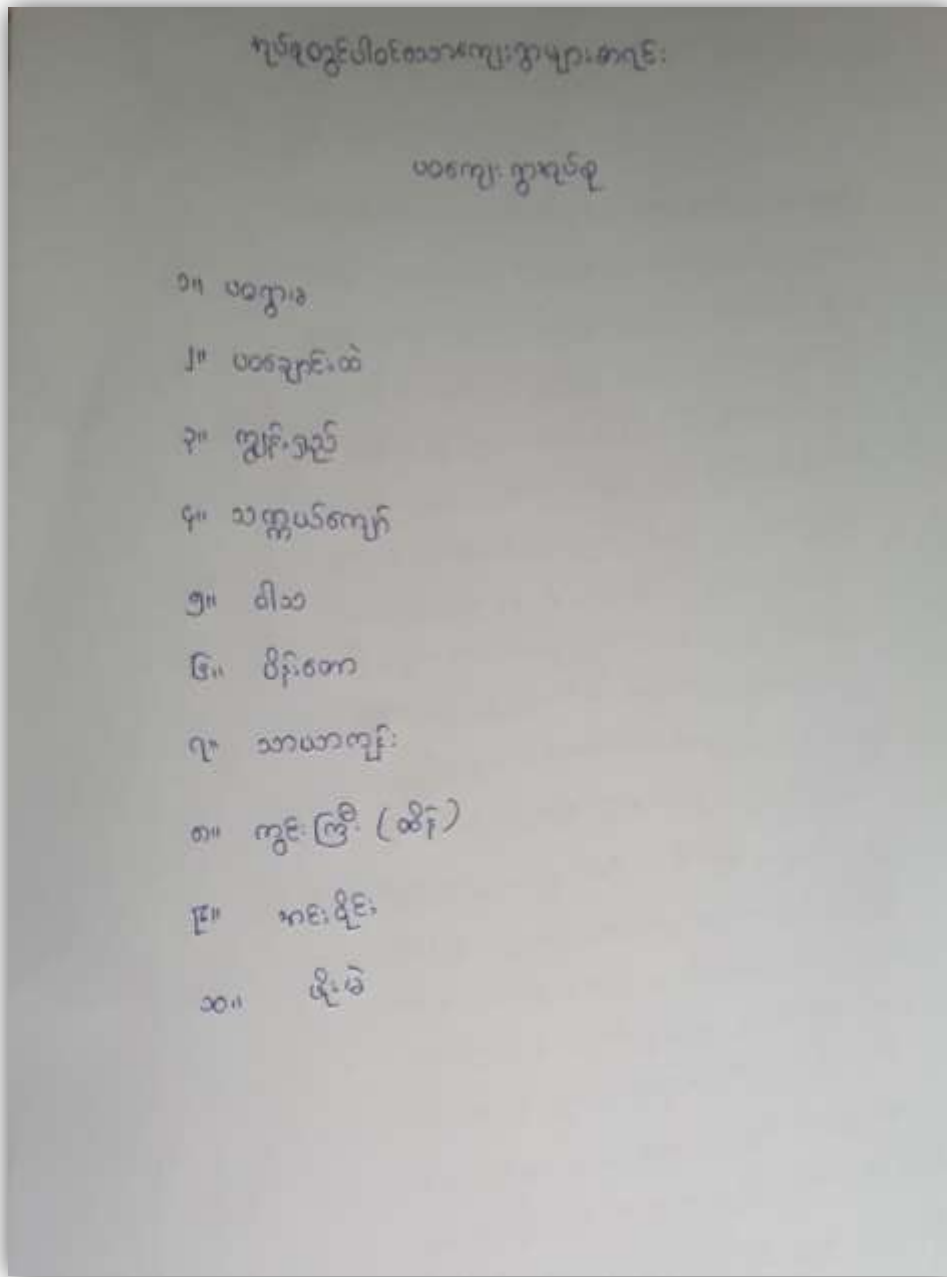 အုပ်စုတွင်ပါဝင်သောကျေးရွာများစာရင်း
ပဝကျေးရွာအုပ်စု
၁။ ပဝရွာမ
၂။ ပဝချောင်းထဲ
၃။ ကျွန်းရှည်
၄။ သက္ကယ်ကျော်
၅။ ဝါသ
၆။ ပိန်းတော
၇။ သာယာကုန်း
၈။ ကွင်းကြီး (ထိန်)
၉။ အင်းဝိုင်း
၁၀။ ဖိုးမဲ